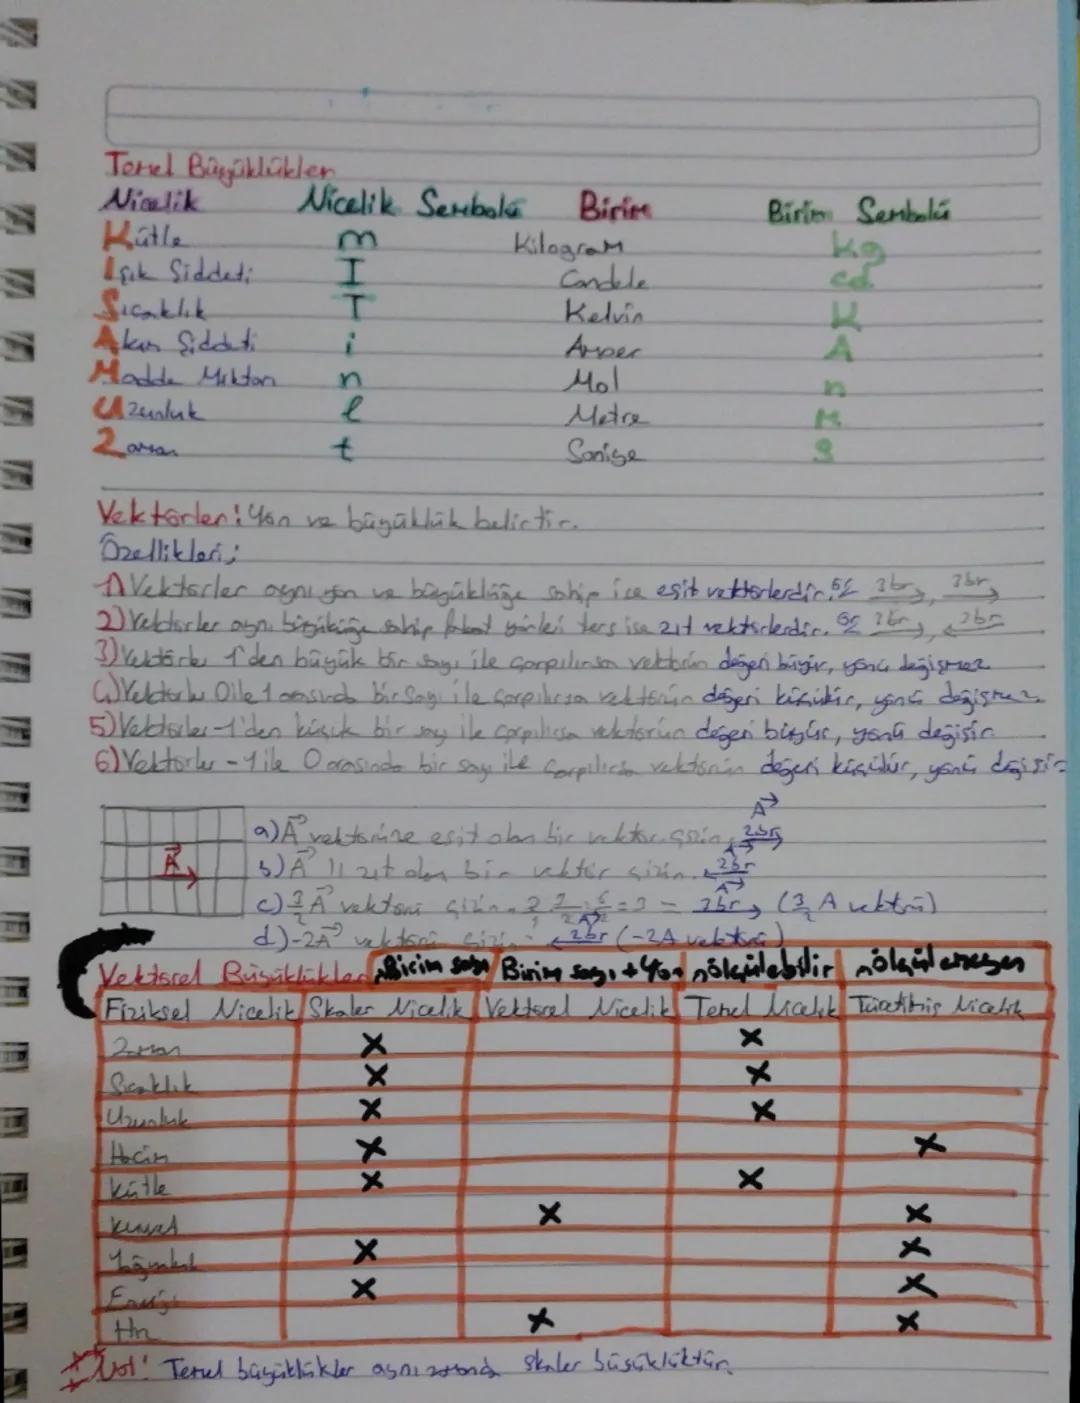 Temel Büyüklükler
Nicelik Nicelik Sembolü Birim Birim Sembolü
Kütle m Kilogram kg
Işık Şiddeti I Candele cd
Sıcaklık T Kelvin K
Akım Şiddeti i Amper A
Madde Miktarı n Mol n
Uzunluk l Metre m
Zaman t Saniye s
Vektörler: Yön ve büyüklük belirtir.
Özellikleri;
1) Vektörler aynı yön ve büyüklüğe sahip ise eşit vektörlerdir. 3br, 3br
2) Vektörler aynı büyüklüğe sahip fakat yönleri ters ise zıt vektörlerdir.
3) Vektörler 1'den büyük bir sayı ile çarpılırsa vektörün değeri büyür, yönü değişmez
4) Vektörler 0 ile 1 arasında bir sayı ile çarpılırsa vektörün değeri küçülür, yönü değişmez.
5) Vektörler -1'den küçük bir sayı ile çarpılırsa vektörün değeri büyür, yönü değişir.
6) Vektörler -1 ile 0 arasında bir sayı ile çarpılırsa vektörün değeri küçülür, yönü değişir
A
a) A vektörüne eşit olan bir vektör çizin. 2br
A b) A 11 zıt olan bir vektör çizin. 2br
c) 3/2 A vektörü çizin. = 3 = 3br (3/2 A vektörü)
d) -2A vektörü çizin. 2br (-2A vektörü)
Vektörel Büyüklükler Birim sayı Birim sayı + Yön ölçülebilir ölçülemeyen
Fiziksel Nicelik Skaler Nicelik Vektörel Nicelik Temel Nicelik Türetilmiş Nicelik
Zaman X X
Sıcaklık X X
Uzunluk X X
Hacim X X
Kütle X X
Kuvvet X X
Yoğunluk X X
Enerji X X
Hız X X
Not! Temel büyüklükler aynı zamanda skaler büyüklüktür.